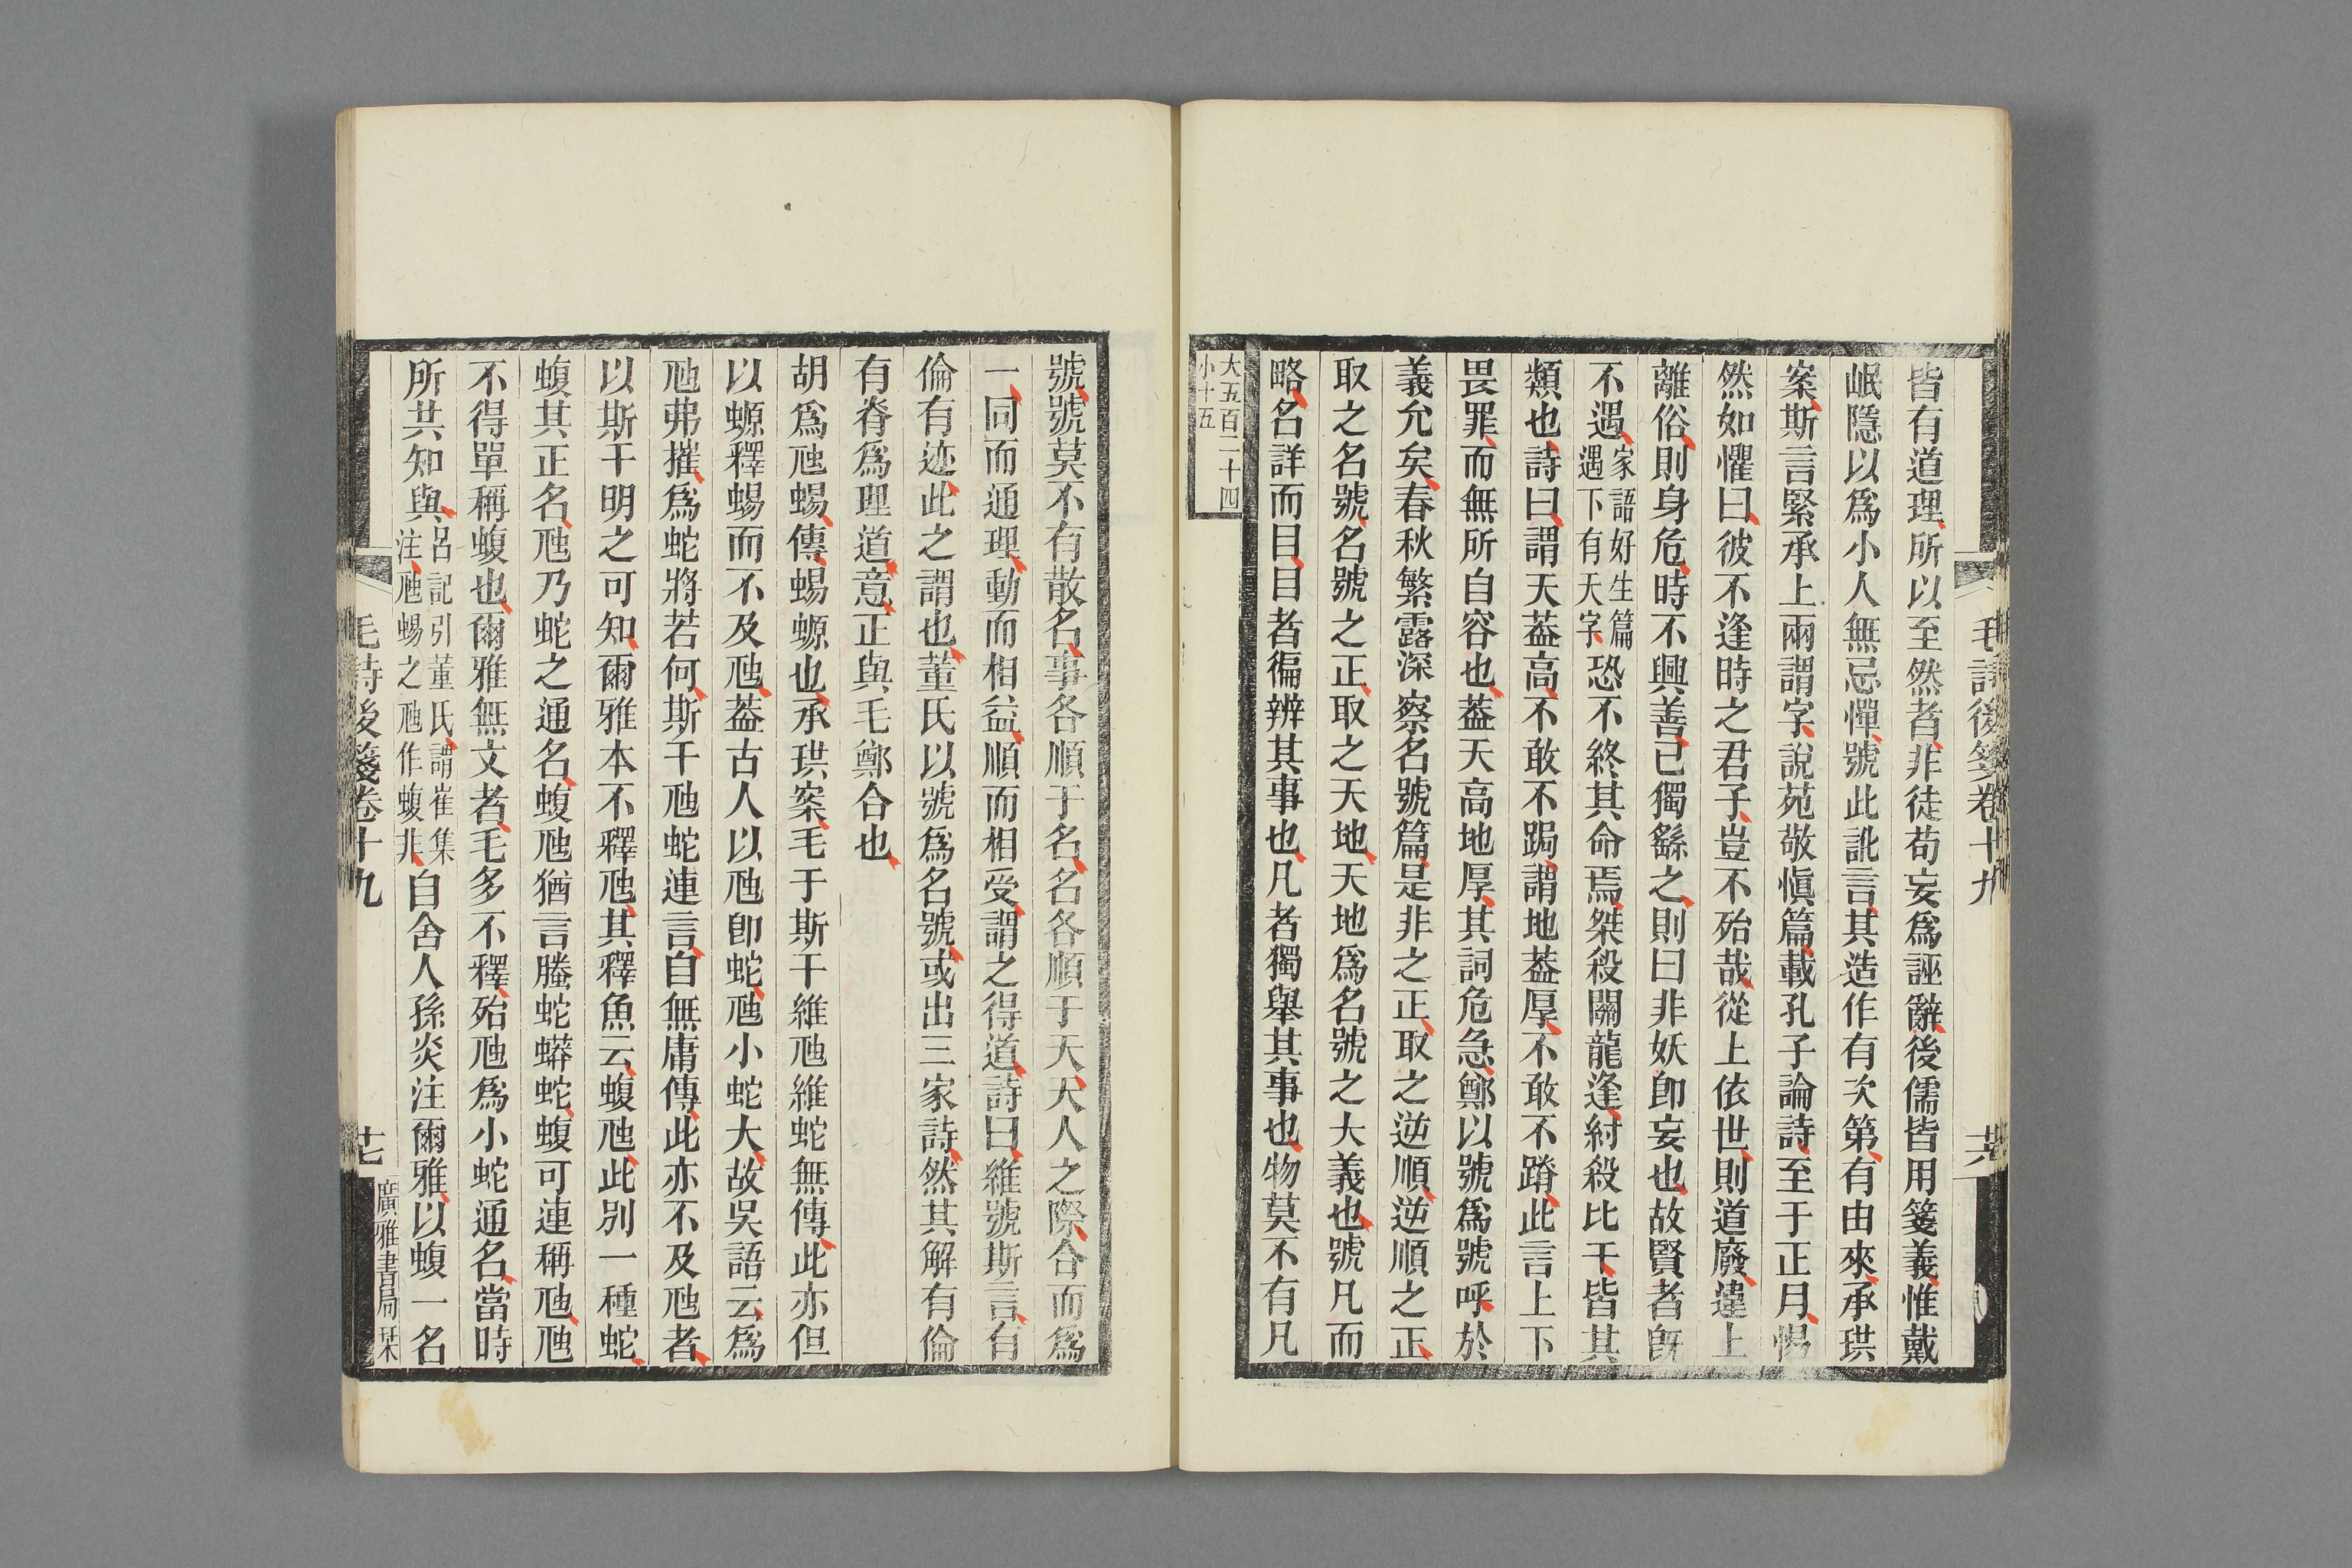 毛詩後箋卷十九
皆有道理所以至然者非徒苟妄爲誣辭後儒皆用箋義惟戴
岷隱以爲小人無忌憚號此訛言其造作有次第有由來承珙
案斯言緊承上兩謂字說苑敬愼篇載孔子論詩至于正月惕
然如懼曰彼不逢時之君子豈不殆哉從上依世則道廢違上
離俗則身危時不興善己獨繇之則曰非妖卽妄也故賢者旣
不遇家語好生篇遇下有天字恐不終其命焉桀殺關龍逢紂殺比干皆其
類也詩曰謂天葢高不敢不跼謂地葢厚不敢不蹐此言上下
畏罪而無所自容也葢天高地厚其詞危急鄭以號爲號呼於
義允矣春秋繁露深察名號篇是非之正取之逆順逆順之正
取之名號名號之正取之天地天地爲名號之大義也號凡而
略名詳而目目者徧辨其事也凡者獨舉其事也物莫不有凡
大五百二十四
小十五
號號莫不有散名事各順于名名各順于天天人之際合而爲
一同而通理動而相益順而相受謂之得道詩曰維號斯言有
倫有迹此之謂也董氏以號爲名號或出三家詩然其解有倫
有脊爲理道意正與毛鄭合也
胡爲虺蜴傳蜴螈也承珙案毛于斯干維虺維蛇無傳此亦但
以螈釋蜴而不及虺葢古人以虺卽蛇虺小蛇大故吳語云爲
虺弗摧爲蛇將若何斯干虺蛇連言自無庸傳此亦不及虺者
以斯干明之可知爾雅本不釋虺其釋魚云蝮虺此別一種蛇
蝮其正名虺乃蛇之通名蝮虺猶言螣蛇蟒蛇蝮可連稱虺虺
不得單稱蝮也爾雅無文者毛多不釋殆虺爲小蛇通名當時
所共知與呂記引董氏謂崔集注虺蜴之虺作蝮非自舍人孫炎注爾雅以蝮一名
毛詩後箋卷十九
廣雅書局栞